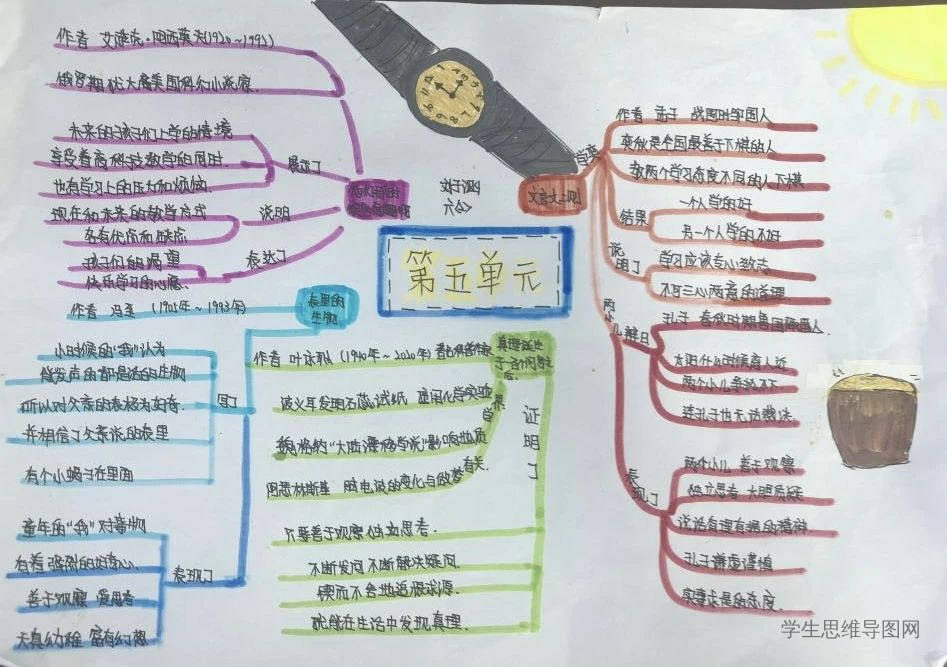 作者 艾萨克·阿西莫夫(1920~1992)
俄罗斯犹太裔美国科幻小说家
未来的孩子们上学的情境
享受着高科技教学的同时
也有学习上的压力和烦恼
展示了
现在和未来的教学方式
各有优点和缺点
说明
孩子们的渴望
快乐学习的心愿
表达了
他们那时
第五单元
文言文二则
作者 孟子 战国时邹国人
弈秋是全国最善于下棋的人
教两个学习态度不同的人下棋
一个人学的好
另一个人学的不好
结果
学习应该专心致志
不可三心两意的道理
说明了
两小儿辩日
孔子 春秋时期鲁国陬邑人
太阳什么时候离人近
两个小儿争执不下
连孔子也无法裁决
两个小儿 善于观察
独立思考 大胆质疑
说话有理有据的精神
孔子谦虚谨慎
实事求是的态度
表现了
表里的
生物
作者 冯至
小时候的“我”认为
能发声的都是活的生物
所以对父亲的表极为好奇
并相信了父亲说的表里
有个小蝎子在里面
童年的“我”对事物
有着强烈的好奇心
善于观察 爱思考
天真幼稚 富有幻想
表现了
真理诞生
于一百个问号之
后
作者 叶永烈 (1940年~2020年)
波义耳发明石蕊试纸 应用化学实验
魏格纳“大陆漂移学说”影响地质
阿瑟林斯基 脑电波的变化与做梦
有关
只要善于观察 独立思考
不断发问 不断解决疑问
锲而不舍地追根求源
就能在生活中发现真理
证明了
学生思维导图网